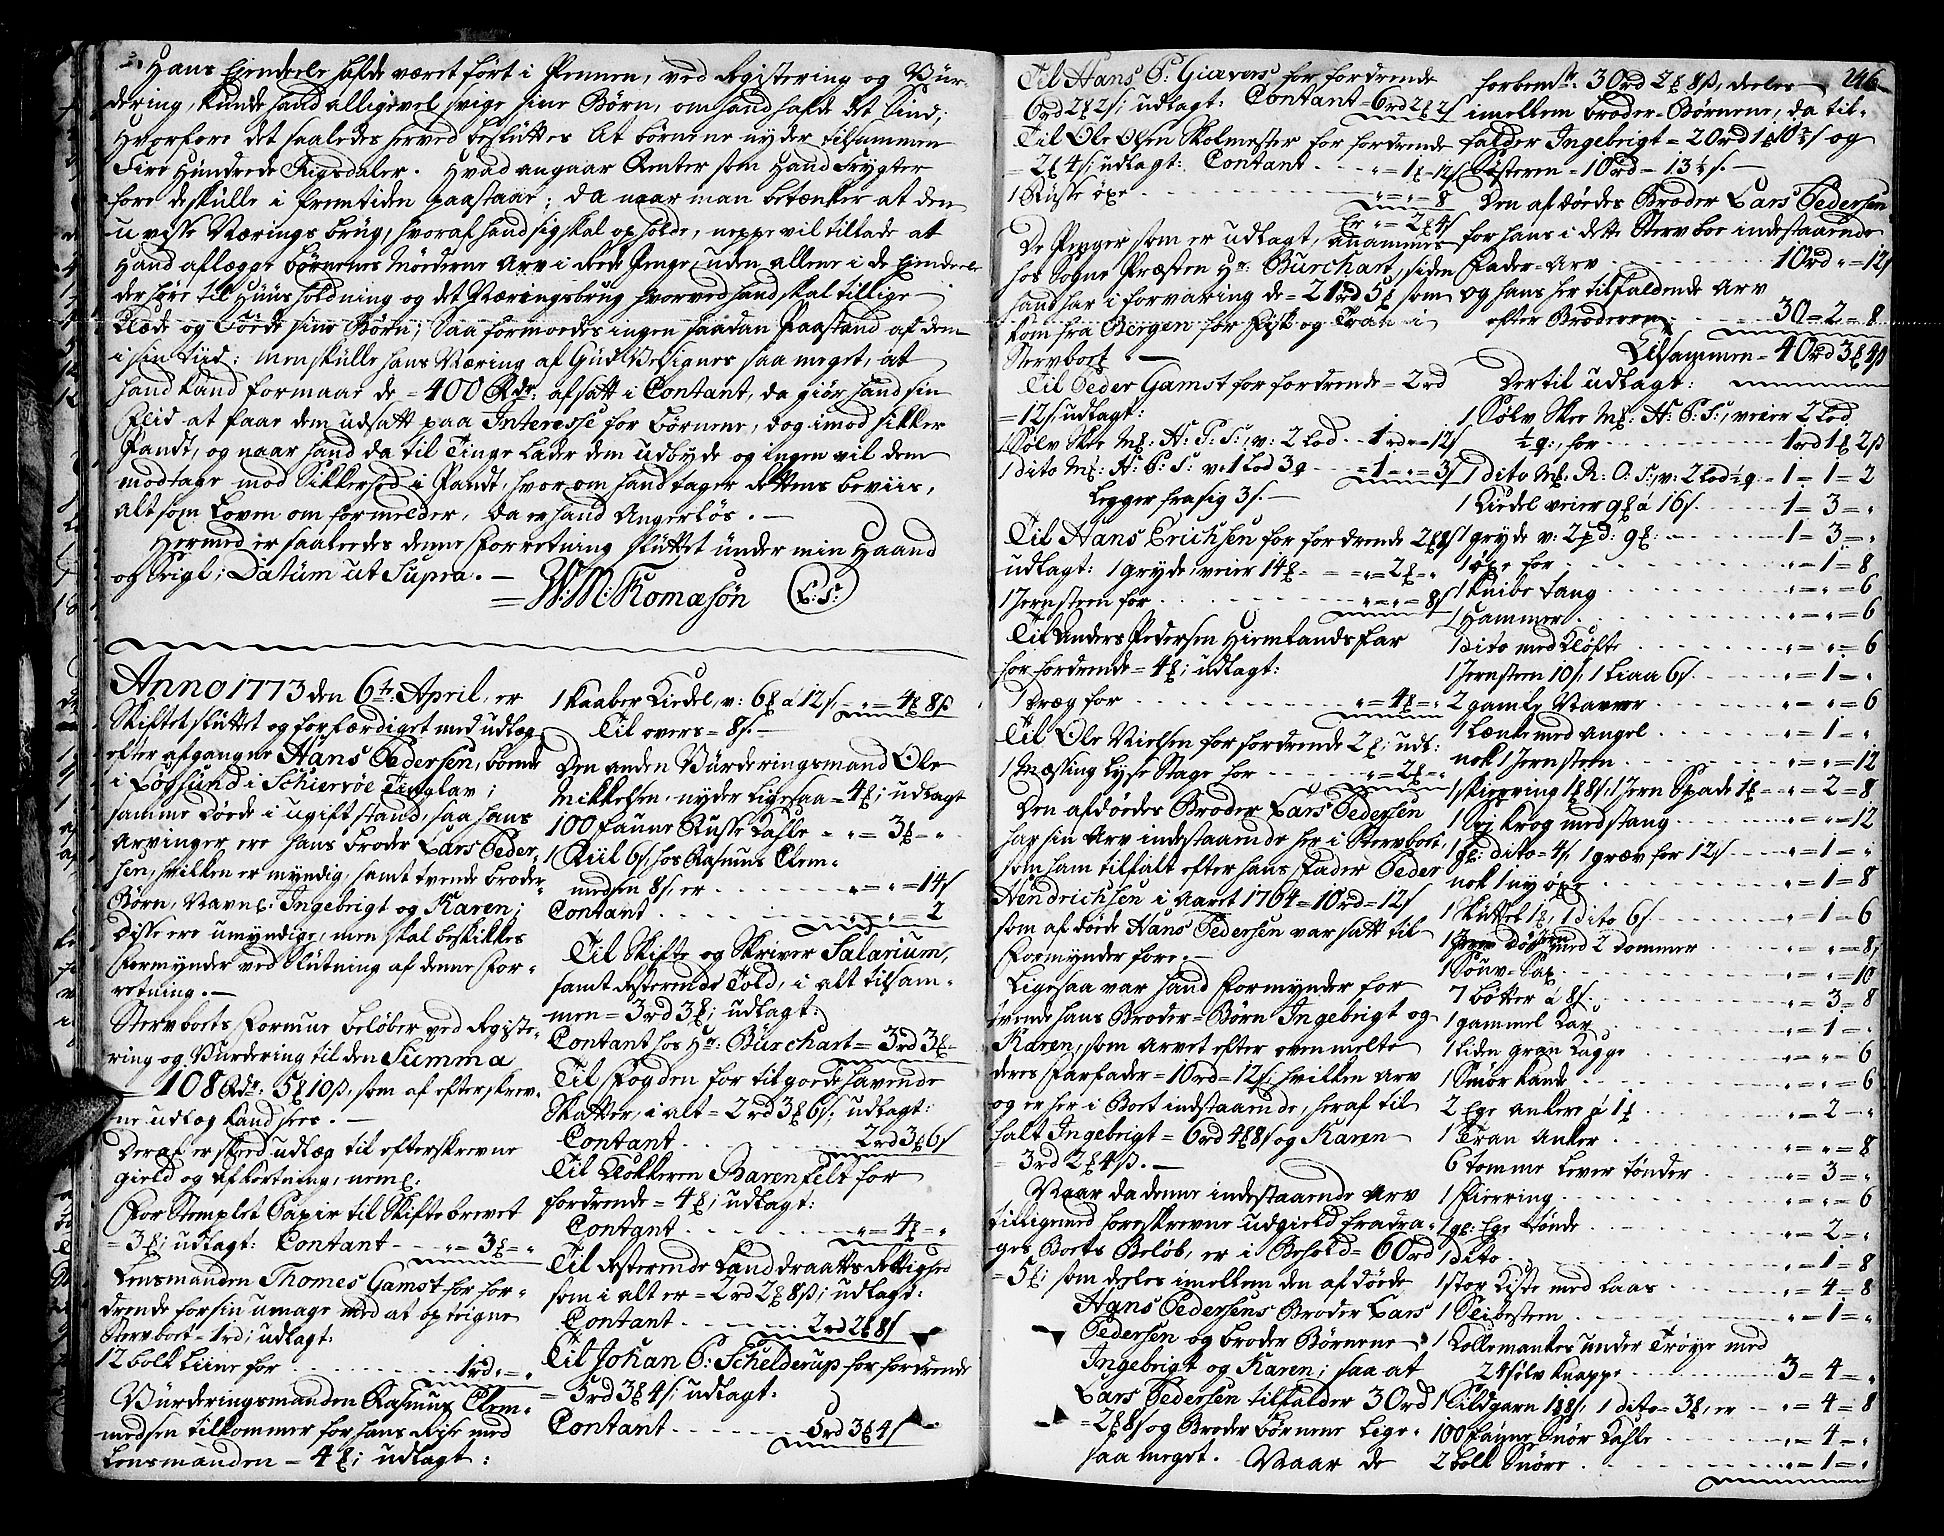 Hans Ejendeele hafde været ført i Pennen, ved Registering og Vur-
dering, kunde hand alligevel svige sine Børn, om hand hafde det Sind;
Hvorfore det saaledes herved besluttes at børnene nyder tilsammen
Fire Hundrede Rigsdaler. Hvad angaar Renter som Hand frygter
fore de skulle i fremtiden paastaar; da naar man betænker at den
uvisse Nærings brug, hvoraf hand sig skal opholde, neppe vil tillade at
Hand aflægge børnenes Møderne Arv i Rede Penge, uden allene i de Ejendeele
der høre til Huus holdning og det Næringsbrug hvorved hand skal tillige
Klæde og Føde sine Børn; Saa formoedes ingen saadan Paastand af dem
i sin tiid: men skulle hans Næring af Gud Velsignes saa meget, at
hand kand formaar de = 400 Rdr. afsatt i Contant, da giør hand sin
Flid at faar dem udsatt paa Interesse for børnene, dog imod sikker
Pandt, og naar hand da til Tinge lader dem udbyde og ingen vil dem
modtage mod Sikkerhed i Pandt, hvorom hand tager Rettens beviis,
alt som Loven om formelder, da er hand Angerløs. —
Hermed er saaledes denne Forretning sluttet under min Haand
og Seigl; Datum ut Supra. —
= W: M: Thomæsøn (L: S:)
Anno 1773 den 6te April, er
Skiftet sluttet og forfærdiget med udlæg
efter afgangne Hans Pedersen, boende
i Løgsund i Schiervøe Tinglav;
samme døde i ugift stand, saa hans
Arvinger ere hans broder Lars Peder-
sen, hvilken er myndig, samt tvende broder
Børn, Navnl: Ingebrigt og Karen;
Disse ere umyndige, men skal beskikkes
Formynder ved Slutning af denne For-
retning. —
Stervboets Formue beløber ved Registe-
ring og Vurdering til den Summa
= 108 Rdr. 5₰ 10ß, som af efterskrev-
ne udlæg kand sees. —
Deraf er skeed udlæg til efterskrevne
gield og afkortning, neml:
For Stemplet Papir til Skiftebrevet
= 3₰; udlagt: Contant - - „ = 3₰ = „
Lensmanden Thomes Gamst for for-
drende for sin umage med at opteigne
Stervboet = 1rd; udlagt:
12 bolk Liine for - - - 1rd = „ = „
Vurderingsmanden Rasmus Clem-
medsen tilkommer for hans Rise med
Lensmanden = 4₰; udlagt:
1 Kaaber Kiedel, v: 6₰ á 12ß, - „ = 4₰ 8ß
Til overs = 8ß. —
Den anden Vurderingsmand Ole
Mikkelsen nyder ligesaa = 4₰; udlagt
100 faune Russe Kahle - „ = 3₰ = „
1 Kiil 6ß, hos Rasmus Clem-
medsen 8ß, er - - - „ = „ = 14ß
Contant - - - „ = „ = 2
Til Skifte og Skriver Salarium,
samt resterende Told, i alt tilsam-
men = 3rd 3₰; udlagt:
Contant hos Hr: Burchart = 3rd 3₰ -
Til Fogden for tilgoede havende
Skatter, i alt = 2rd 3₰ 6ß; udlagt:
Contant - - - 2rd 3₰ 6ß
Til Klokkeren Barenfelt for
fordrende = 4₰; udlagt:
Contant - - - „ = 4₰ = „
Til resterende Landdraatts Rettighed
som i alt er = 2rd 2₰ 8ß; udlagt:
Contant - - - 2rd 2₰ 8ß
Til Johan P: Schelderup for fordrende
= 5rd 3₰ 4ß; udlagt:
Contant - - - 5rd 3₰ 4ß
246
Til Hans P: Giævers for fordrende
6rd 2₰ 2ß; udlagt: Contant = 6rd 2₰ 2ß
Til Ole Olsen Skolmester for fordrende
= 2₰ 4ß; udlagt: Contant - - „ = 1₰ = 12ß
1 Russe öxe - - - „ = „ = 8
Er „ = 2₰ 4ß
De Penger som er udlagt, anammes
hos Sogne Præsten Hr: Burchart, siden
hand har i forvaring de = 21rd 5₰ som
kom fra Bergen for Fisk og Tran i
Stervboet. —
Til Peder Gamst for fordrende = 2rd
= 12ß; udlagt:
1 Sølv Skee M: H: P: S:, v: 2 Lod - - 1rd = „ = 12ß
1 dito M: H: P: S: v: 1 Lod 3q - - = 1 = „ = 3ß
Legger fra sig 3ß. —
Til Hans Erichsen for fordrende 2₰ 8ß
udlagt: 1 gryde, veier 14₰ - - „ = 2₰ = „
1 Jernsteen for - - - „ = „ = 8ß
Til Anders Pedersen Hiemlandsfar
for fordrende = 4₰; udlagt:
1 Dræg for - - - „ = 4₰ = „
Til Ole Nielsen for fordrende 2₰; udl:
1 Mæssing Lyse Stage for - - - „ = 2₰ = „
Den afdødes Broder Lars Pedersen
har sin Arv indestaaende her i Stervboet,
som ham tilfalt efter hans Fader Peder
Hendrichsen i Aaret 1764 = 10rd = 12ß
som afdøde Hans Pedersen var satt til
Formynder fore. —
Ligesaa var hand Formynder for
tvende hans Broder-Børn Ingebrigt og
Karen, som arvet efter ovenmelte
deres Farfader = 10rd = 12ß, hvilken Arv
og er her i Boet indestaaende, heraf til
falt Ingebrigt = 6rd 4₰ 8ß og Karen
= 3rd 2₰ 4ß. —
Naar da denne indestaaende Arv
tilligemed foreskrevne udgield fradra-
ges Boets Beløb, er i Behold = 60rd
= 5₰; som deeles imellem den afdøde
Hans Pedersens Broder Lars
Pedersen og broder Børnene
Ingebrigt og Karen; saa at
Lars Pedersen tilfalder 30rd
= 2₰ 8ß og Broder Børnene lige-
saa meget. Naar de
forbemte: 30rd 2₰ 8ß, deeles
imellem broder-Børnene, da til-
falder Ingebrigt = 20rd 1₰ 10⅔ß og
Søsteren = 10rd = 13⅓ß. —
Den afdødes Broder Lars Pedersen
for hans i dette Stervboe indestaaende
Fader-Arv - - - 10rd „ = 12ß
og hans her tilfaldende Arv
efter Broderen - - - 30 = 2 = 8
Tilsammen = 40rd 3₰ 4ß
Dertil udlagt:
1 Sølv Skee M: H: P: S:, veier 2 Lod
½ q:, for - - - 1rd 1₰ 2ß
1 dito M: R: O: S:, v: 2 Lod ½ q: - 1 = 1 = 2
1 Kiedel veier 9₰ á 16ß - - - 1 = 3 = „
1 gryde v: 2pd: 9₰: - - - 1 = 3 = „
1 öxe for - - - „ = 1 = 8
1 Knibe Tang - - - „ = „ = 6
1 Hammer - - - „ = „ = 6
1 dito med Kløfte - - - „ = „ = 6
1 Jernsteen 10ß, 1 Liaa 6ß - - - „ = 1 = „
2 gamle Navver - - - „ = „ = 6
1 Lænke med angel - - - „ = 1 = „
nok 1 Jernsteen - - - „ = „ = 12
1 Skierring 1₰ 8ß, 1 Jern Spade 1₰ - „ = 2 = 8
1 Vej Krog med stang - - - „ = „ = 12
1 gl: dito = 4ß, 1 græv for 12ß - - - „ = 1 = „
nok 1 ny öxe - - - „ = 1 = 8
1 Skuttel 1₰, 1 dito 6ß - - - „ = 1 = 6
med 2 Dommer - - - „ = „ = 8
1 Souv-Sax - - - „ = „ = 10
7 bötter á 8ß - - - „ = 3 = 8
1 gammel Kar - - - „ = 1 = „
1 liden gran Kagge - - - „ = „ = 6
1 Smör Kande - - - „ = „ = 6
2 Ege ankere á 1₰ - - - „ = 2 = „
1 Tran Anker - - - „ = „ = 8
6 tomme Lever tønder - - - „ = 3 = „
1 Fierring - - - „ = „ = 6
1 gl: Ege tønde - - - „ = 2 = „
1 dito - - - „ = 1 = 8
1 stor Kiste med Laas - - - „ = 4 = 8
1 Sliibesteen - - - „ = 1 = „
1 Kallemankes under Trøye med
24 sølv Knappe - - - 3 = 4 = „
1 Sildgarn 1₰ 8ß, 1 dito = 3₰, er - „ = 4 = 8
100 faune Snör Kahle - - - „ = 4 = „
2 bolk Snöre - - - „ = 1 = „